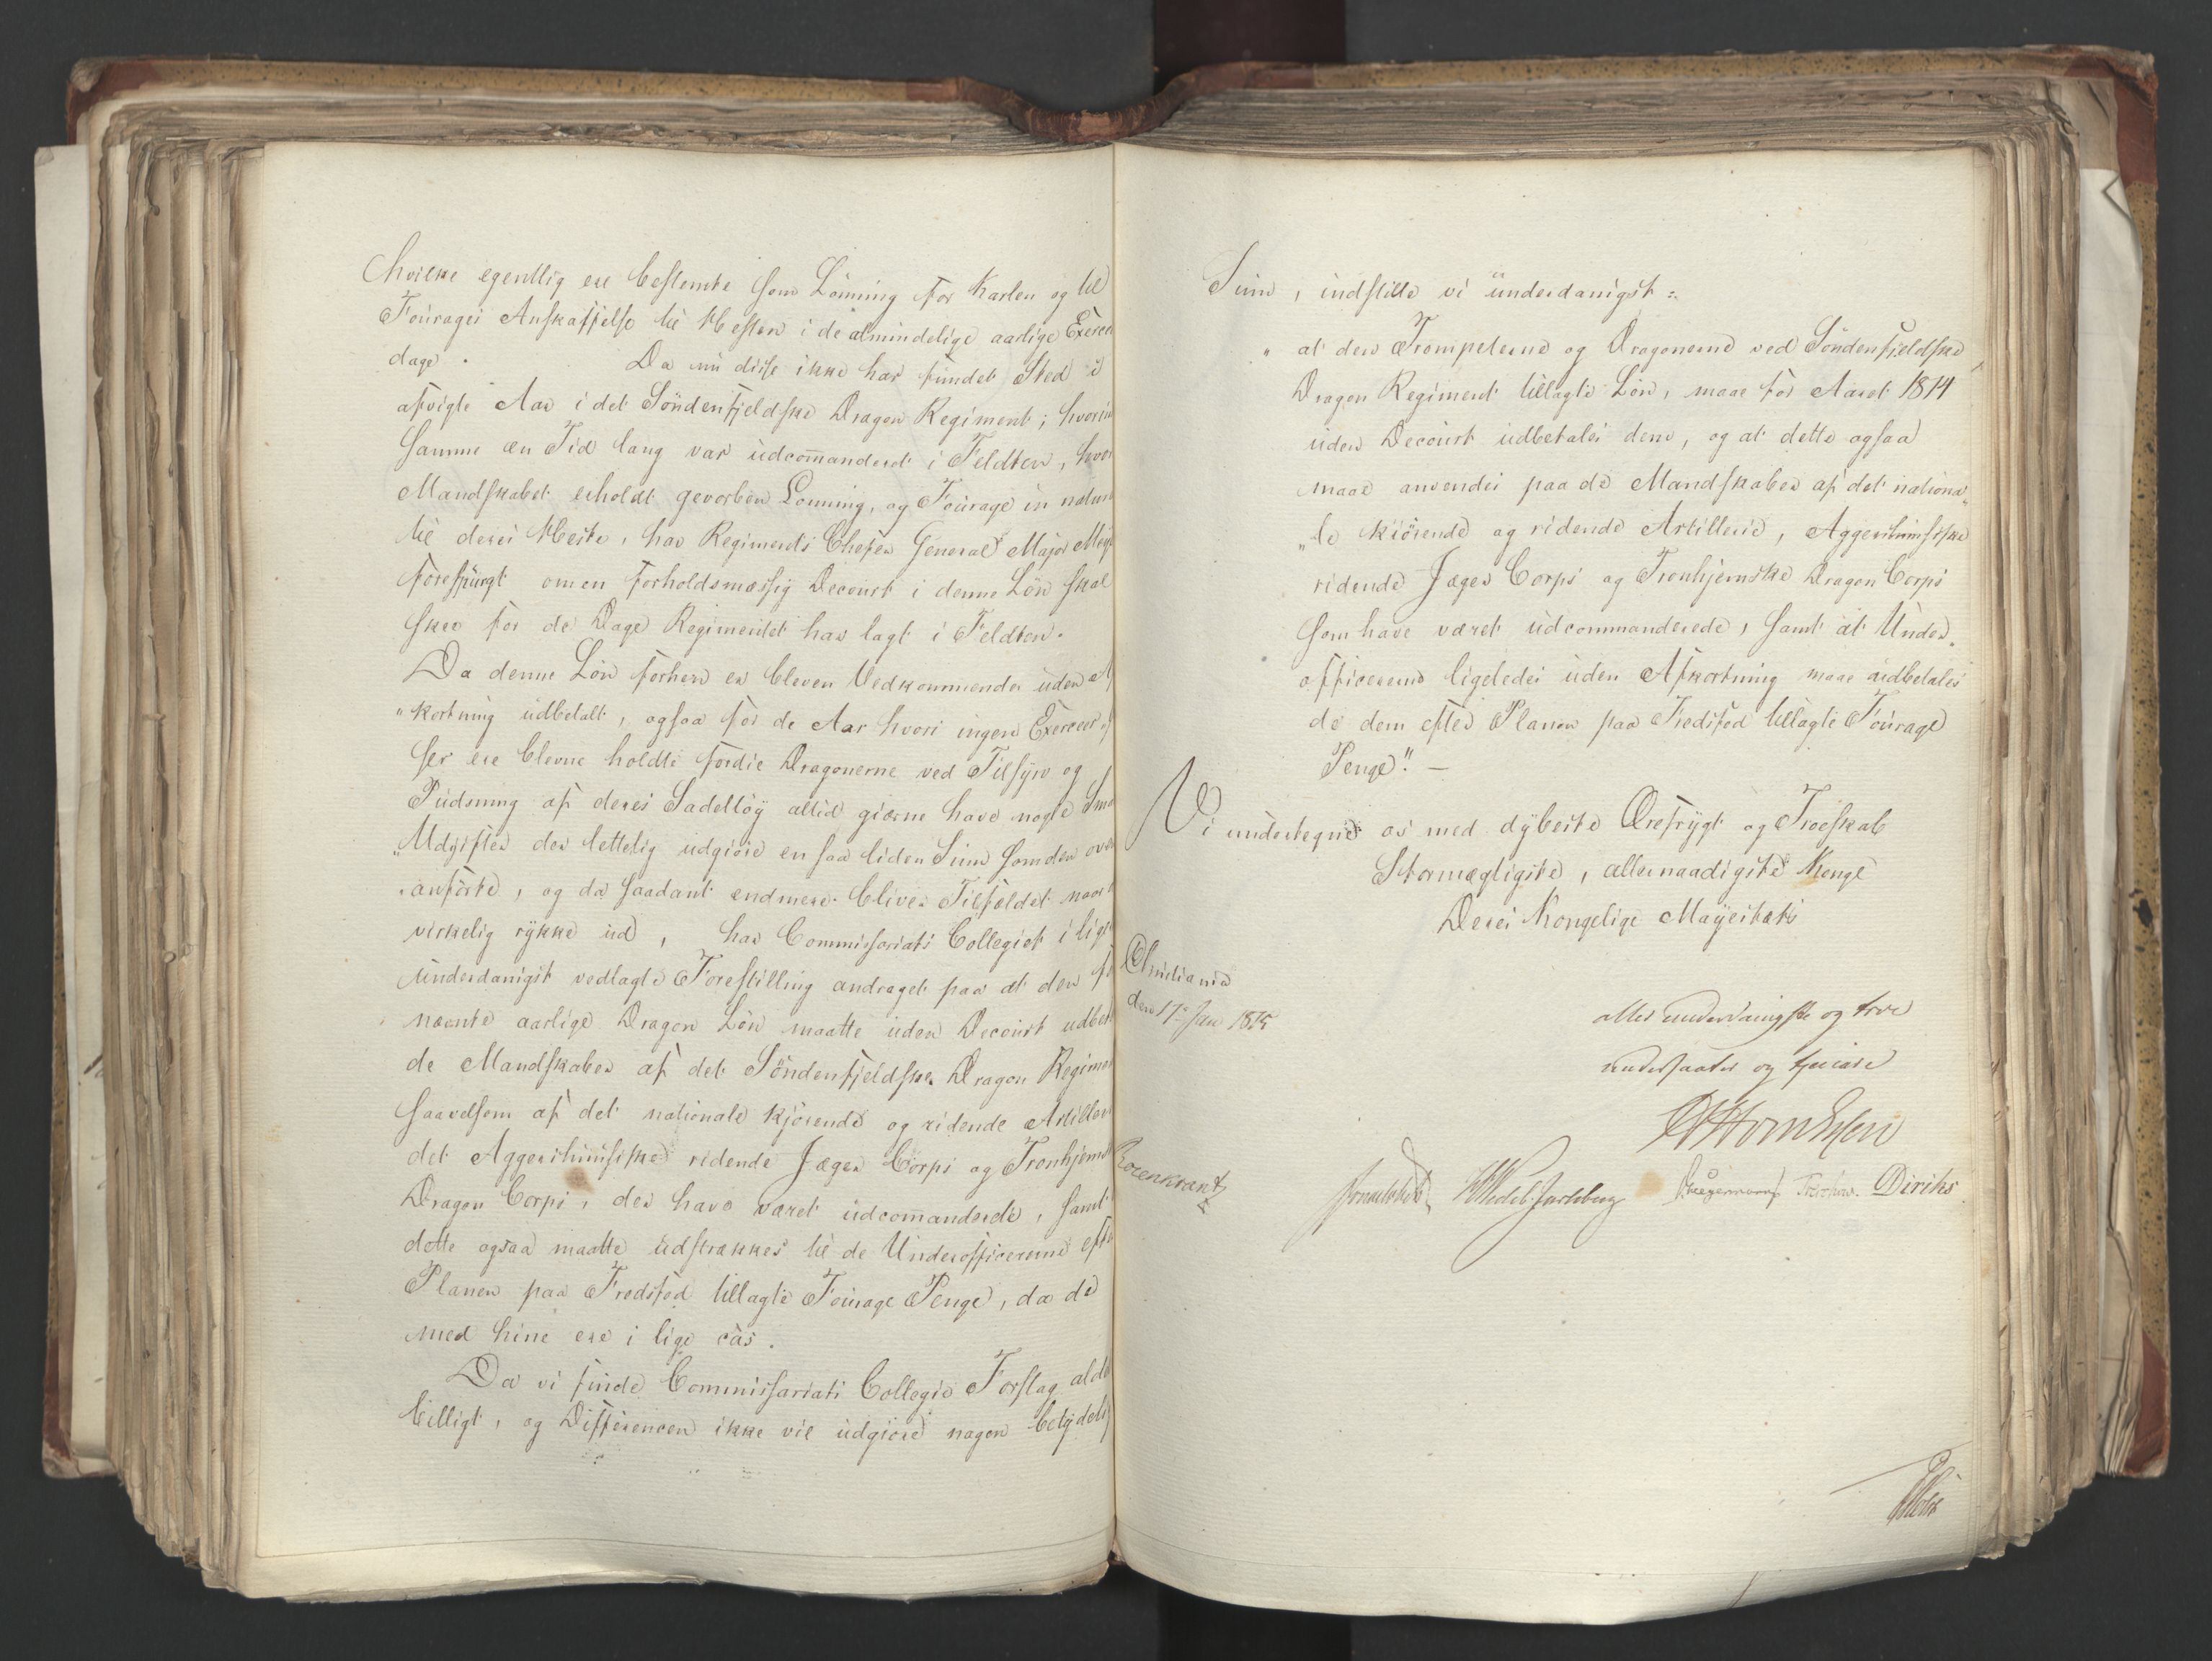 hvilke egentlig ere bestemte som Lönning for Karlen og til
Fourages Anskaffelse til Hesten i de almindelige aarlige Exerceer
dage. Da nu disse ikke har fundet Sted i
afvigte Aar i det Söndenfjeldske Dragon Regiment; hvorim
samme en Tid lang var udcom̄anderet i Feldten, hvor
Mandskabet erholdt gevorben Lönning, og Fourage in natura
til deres Heste, har Regiments Chefen General Major
forespurgt om en forholdsmæssig Decourt i denne Lön skal
skee for de Dage Regimentet har lagt i Feldten.
Da denne Lön forhen er bleven Vedkommende uden Af
"kortning udbetalt, ogsaa for de Aar hvori ingen Exerceer
ser ere blevne holdte fordie Dragonerne ved Tilsyn og
Pudsning af deres Sadeltöy altid gierne have nogle Smaa
"Udgifter der lettelig udgiöre en saa liden Sum som den oven
"anförte, og da saadant endmere bliver Tilfældet naar
virkelig rykke ud, har Commissariats Collegiet i lige
underdanigst vedlagte Forestilling andraget paa at den
nævnte aarlige Dragon Lön maatte uden Decourt udbet
de Mandskaber af det Söndenfjeldske Dragon Regimen
saavelsom af det nationale kjörende og ridende Artilleri
det Aggershuusiske ridende Jæger Corps og Tronhjemske
Dragon Corps, der have været udcom̄anderede, samt
dette ogsaa maatte udstrækkes til de Underofficererne efter
Planen paa Fredsfod tillagte Fourage Penge, da de
med hine ere i lige cas.
Da vi finde Commissariats Collegie Forslag alde
billigt, og Differencen ikke vil udgiöre nogen betydelig
Sum, indstille vi underdanigst:
"at den Trompeterne og Dragonerne ved Söndenfjeldske
Dragon Regiment tillagte Lön, maae for Aaret 1814
uden Decourt udbetales dem, og at dette ogsaa
maae anvendes paa de Mandskaber af det nationa"
"le kiörende og ridende Artillerie, Aggershuusiske
ridende Jæger Corps og Tronhjemske Dragon Corps
som have været udcommanderede, samt at Under"
officererne ligeledes uden Afkortning maae udbetales
de dem efter Planen paa Fredsfod tillagte Fourage
Penge". —
Vi undertegne os med dybeste Ærefrygt og Troeskab
Stormægtigste, allernaadigste Konge
Deres Kongelige Mayestæts
Christiania
den 17 Jan 1815
aller underdanigste og troe
undersaatter og tjenere
Rosenkrantz
Sommerhielm HWedel Jarlsberg Hegermann Treschow. Diriks
Holst